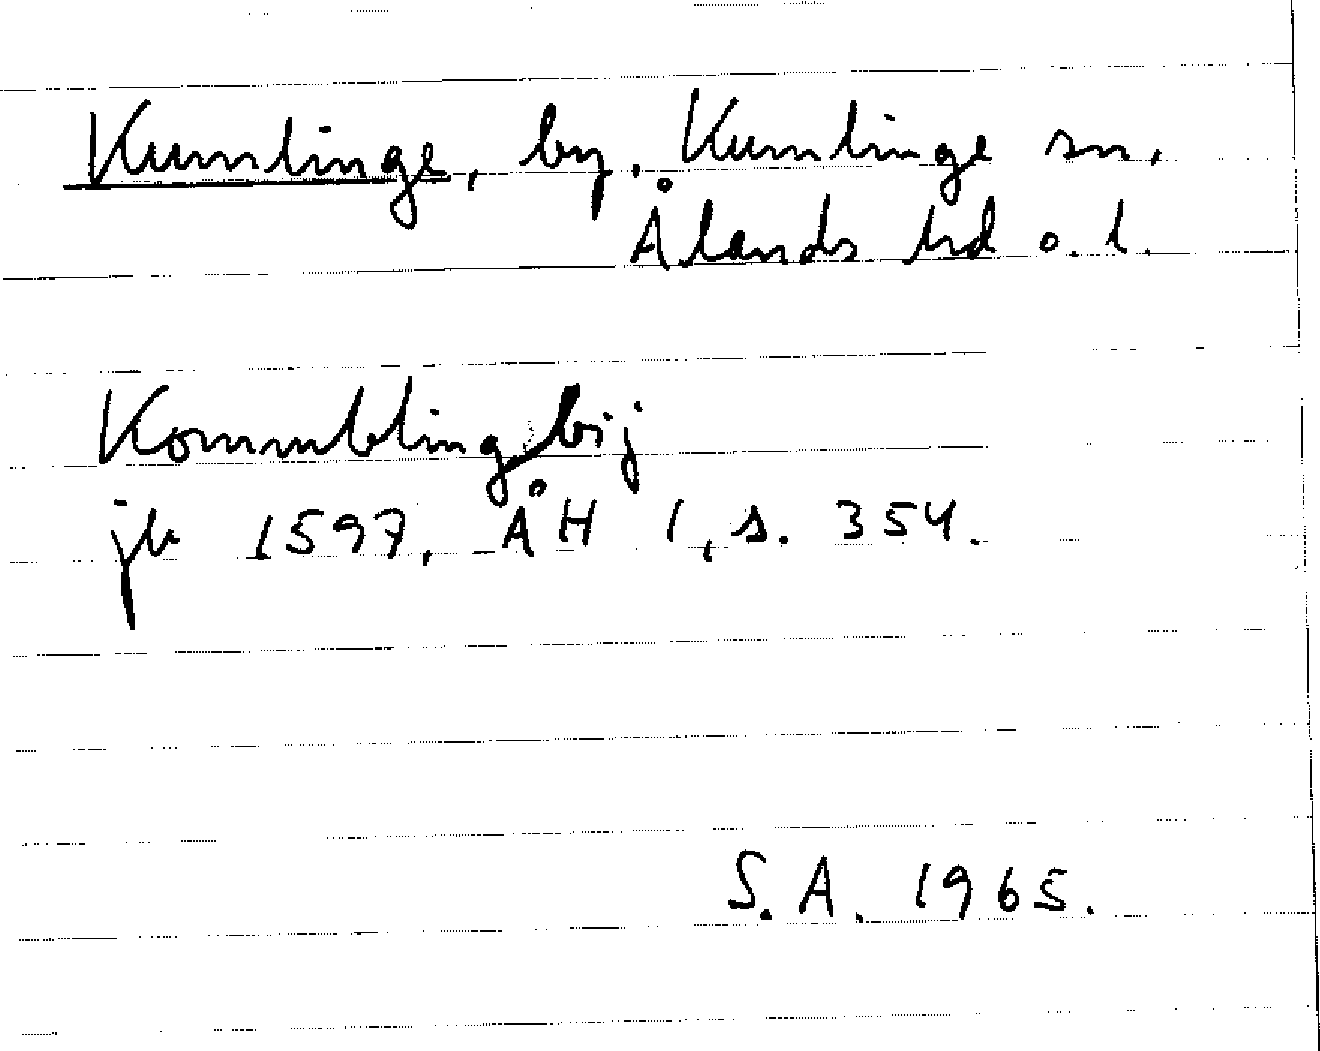 Kumlinge, by, Kumlinge sn,
Ålands hd o. l.
Kommblingbij
jb 1597, ÅH 1, s. 354.
S.A. 1965.